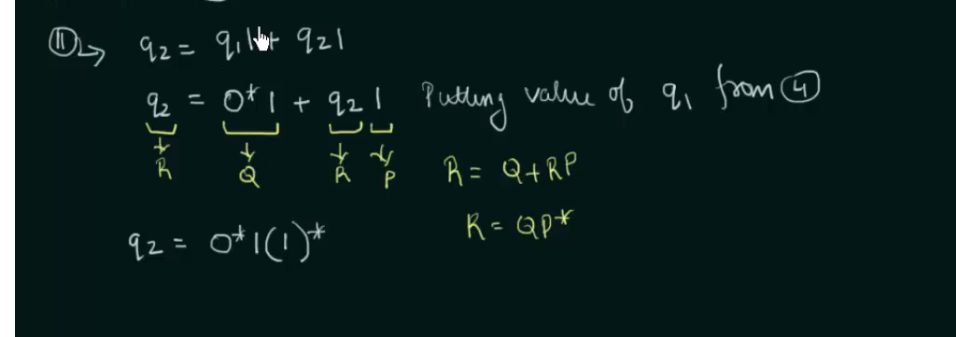 ⑪→ q₂ = q₁1 + q₂1
q₂ = 0*1 + q₂ 1 Putting value of q₁ from ④
↓ ↓ ↓ ↓
R Q R P R = Q+RP
q₂ = 0*1(1)* R = QP*